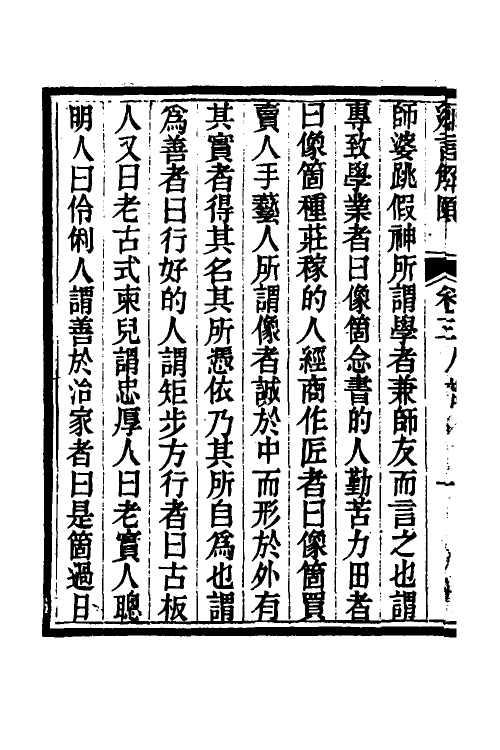 卷三
師婆跳假神所謂學者兼師友而言之也謂
專致學業者曰像箇念書的人勤苦力田者
曰像箇種莊稼的人經商作匠者曰像箇買
賣人手藝人所謂像者誠於中而形於外有
其實者得其名其所憑依乃其所自為也謂
為善者曰行好的人謂矩步方行者曰古板
人又曰老古式柬兒謂忠厚人曰老實人聰
明人曰伶俐人謂善於治家者曰是箇過日